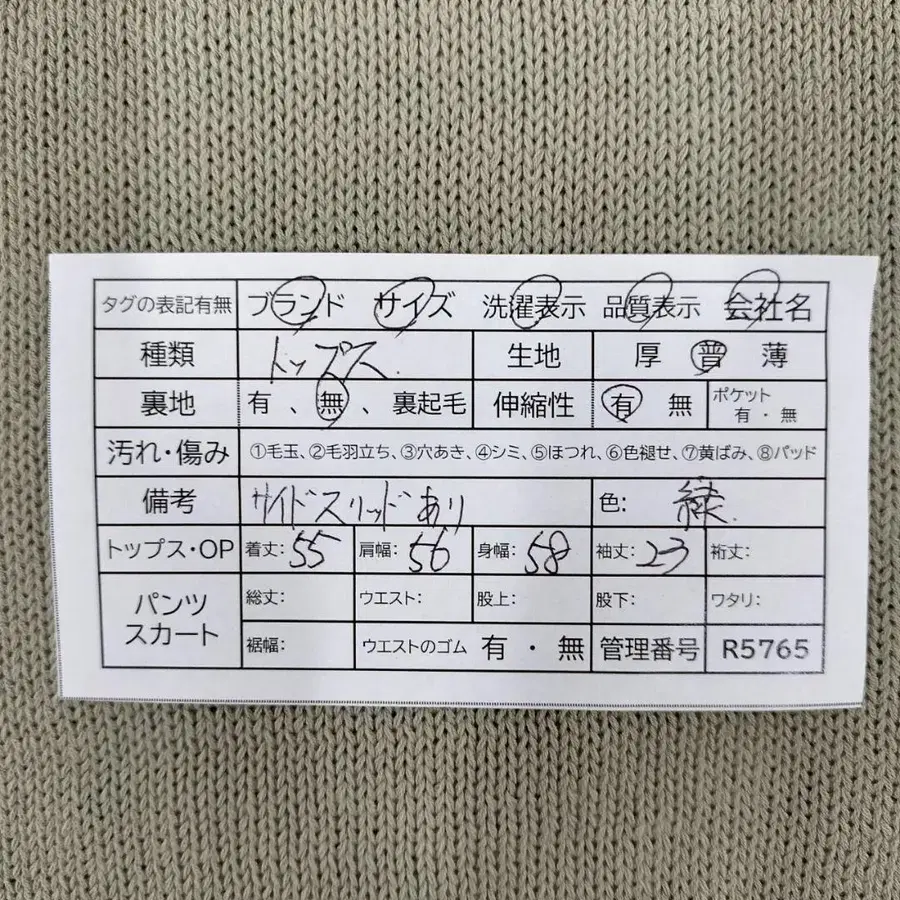 タグの表記有無 ブランド サイズ 洗濯表示 品質表示 会社名
種類 トップス 生地 厚 普 薄
裏地 有、無、裏起毛 伸縮性 有 無 ポケット 有・無
汚れ・傷み ①毛玉、②毛羽立ち、③穴あき、④シミ、⑤ほつれ、⑥色褪せ、⑦黄ばみ、⑧パッド
備考 サイドスリッドあり 色: 緑
トップス・OP 着丈: 55 肩幅: 56 身幅: 58 袖丈: 23 裄丈:
パンツ スカート 総丈: ウエスト: 股上: 股下: ワタリ:
裾幅: ウエストのゴム 有・無 管理番号 R5765